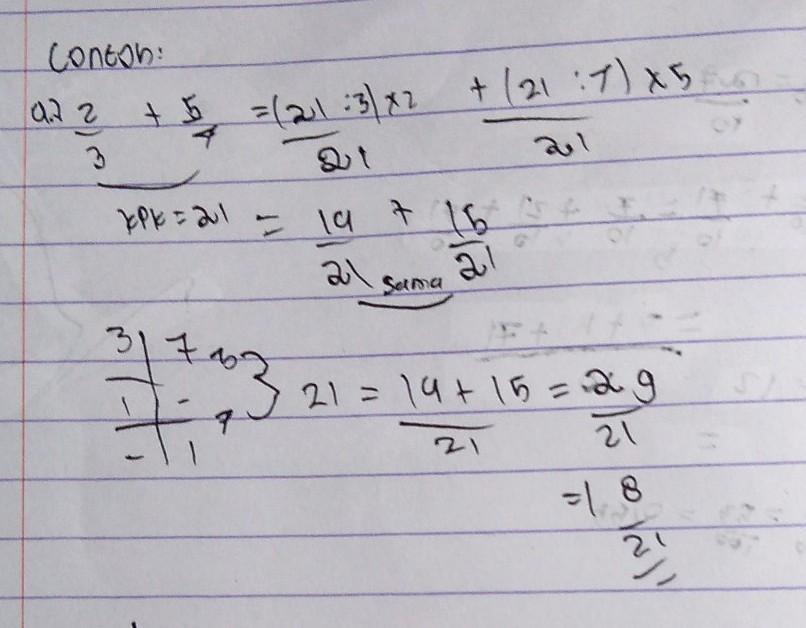 Contoh:
a.) 2/3 + 5/7 = (21 : 3) x 2 / 21 + (21 : 7) x 5 / 21
KPK = 21 = 14/21 + 15/21
sama
3 | 7 3
1 | - 7 } 21 = 14 + 15 / 21 = 29/21
- | 1
= 1 8/21